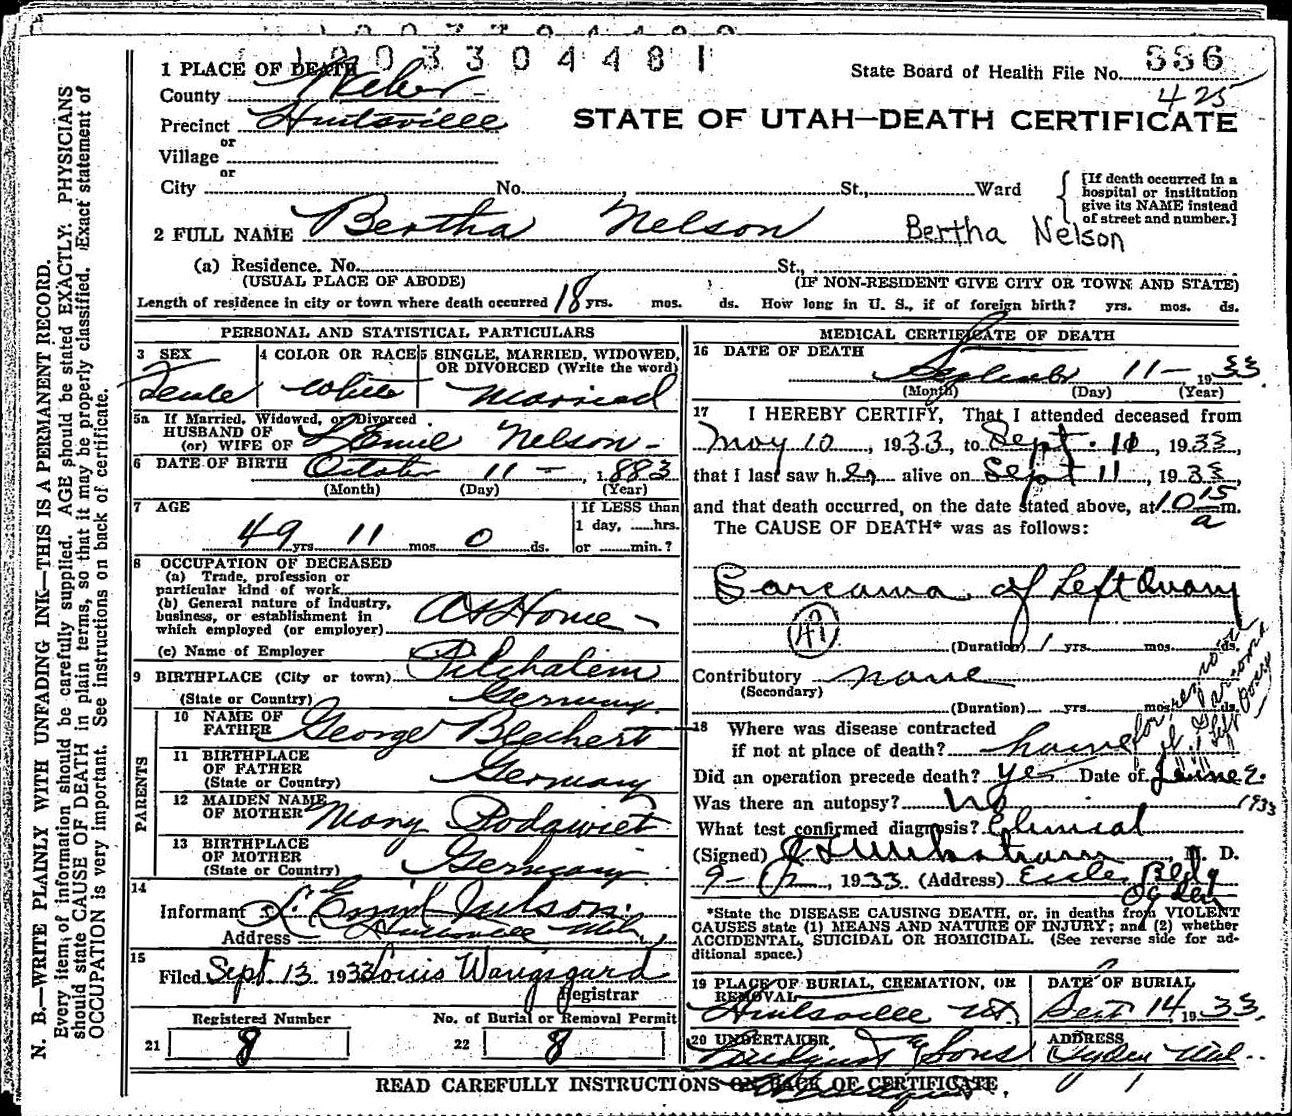 1003304481
1 PLACE OF DEATH
State Board of Health File No. 336
425
County Weber
STATE OF UTAH—DEATH CERTIFICATE
Precinct Huntsville
or
Village
or
City No. , St., Ward
[If death occurred in a
hospital or institution
give its NAME instead
of street and number.]
2 FULL NAME Bertha Nelson Bertha Nelson
(a) Residence. No. St.,
(USUAL PLACE OF ABODE) (IF NON-RESIDENT GIVE CITY OR TOWN AND STATE)
Length of residence in city or town where death occurred 18 yrs. mos. ds. How long in U. S., if of foreign birth? yrs. mos. ds.
PERSONAL AND STATISTICAL PARTICULARS
3 SEX 4 COLOR OR RACE 5 SINGLE, MARRIED, WIDOWED,
OR DIVORCED (Write the word)
Female White Married
5a If Married, Widowed, or Divorced
HUSBAND OF
(or) WIFE OF L Emil Nelson
6 DATE OF BIRTH October 11 — , 1883
(Month) (Day) (Year)
7 AGE
If LESS than
1 day, hrs.
49 yrs 11 mos. 0 ds. or min.?
8 OCCUPATION OF DECEASED
(a) Trade, profession or
particular kind of work
(b) General nature of industry,
business, or establishment in
which employed (or employer) At Home
(c) Name of Employer
9 BIRTHPLACE (City or town)
(State or Country) Germany
PARENTS
10 NAME OF
FATHER George Blechert
11 BIRTHPLACE
OF FATHER
(State or Country) Germany
12 MAIDEN NAME
OF MOTHER Mary
13 BIRTHPLACE
OF MOTHER
(State or Country) Germany
14
Informant L Emil Nelson
Address Huntsville Utah
15
Filed Sept 13 1933 Louis Wangsgard
Registrar
Registered Number No. of Burial or Removal Permit
21 8 22 8
MEDICAL CERTIFICATE OF DEATH
16 DATE OF DEATH
September 11 — 1933
(Month) (Day) (Year)
17 I HEREBY CERTIFY, That I attended deceased from
May 10 , 1933, to Sept. 11 , 1933,
that I last saw her alive on Sept 11 , 1933,
and that death occurred, on the date stated above, at 10 15 a m.
The CAUSE OF DEATH* was as follows:
Sarcoma of Left Ovary
49
(Duration) 1 yrs. mos. ds.
Contributory none
(Secondary)
(Duration) yrs. mos. ds.
18 Where was disease contracted
if not at place of death? home
for removal of Sarcoma Left Ovary
Did an operation precede death? yes Date of June 2.
1933
Was there an autopsy? no
What test confirmed diagnosis? Clinical
(Signed) M. D.
9- , 1933 (Address) Eccles Bldg
Ogden
*State the DISEASE CAUSING DEATH, or, in deaths from VIOLENT
CAUSES state (1) MEANS AND NATURE OF INJURY; and (2) whether
ACCIDENTAL, SUICIDAL OR HOMICIDAL. (See reverse side for ad-
ditional space.)
19 PLACE OF BURIAL, CREMATION, OR
REMOVAL DATE OF BURIAL
Huntsville Ut. Sept 14 1933
20 UNDERTAKER ADDRESS
Lindquist & Sons Ogden Utah
READ CAREFULLY INSTRUCTIONS ON BACK OF CERTIFICATE.
N. B.—WRITE PLAINLY WITH UNFADING INK—THIS IS A PERMANENT RECORD.
Every item of information should be carefully supplied. AGE should be stated EXACTLY. PHYSICIANS
should state CAUSE OF DEATH in plain terms, so that it may be properly classified. Exact statement of
OCCUPATION is very important. See instructions on back of certificate.